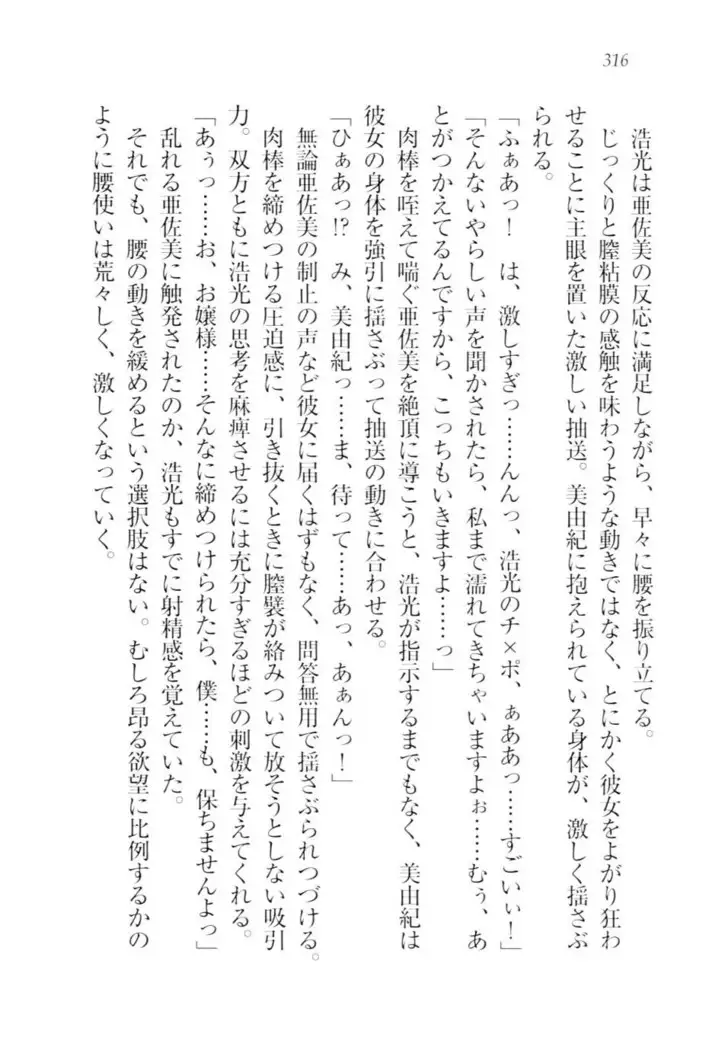 316
浩光は亜佐美の反応に満足しながら、早々に腰を振り立てる。
じっくりと膣粘膜の感触を味わうような動きではなく、とにかく彼女をよがり狂わ
せることに主眼を置いた激しい抽送。美由紀に抱えられている身体が、激しく揺さぶ
られる。
「ふぁあっ！　は、激しすぎっ……んんっ、浩光のチ×ポ、ぁああっ……すごいぃ！」
「そんないやらしい声を聞かされたら、私まで濡れてきちゃいますよぉ……むぅ、あ
とがつかえてるんですから、こっちもいきますよ……っ」
肉棒を咥えて喘ぐ亜佐美を絶頂に導こうと、浩光が指示するまでもなく、美由紀は
彼女の身体を強引に揺さぶって抽送の動きに合わせる。
「ひぁあっ!?　み、美由紀っ……ま、待って……あっ、あぁんっ！」
無論亜佐美の制止の声など彼女に届くはずもなく、問答無用で揺さぶられつづける。
肉棒を締めつける圧迫感に、引き抜くときに膣襞が絡みついて放そうとしない吸引
力。双方ともに浩光の思考を麻痺させるには充分すぎるほどの刺激を与えてくれる。
「あぅっ……お、お嬢様……そんなに締めつけられたら、僕……も、保ちませんよっ」
乱れる亜佐美に触発されたのか、浩光もすでに射精感を覚えていた。
それでも、腰の動きを緩めるという選択肢はない。むしろ昂る欲望に比例するかの
ように腰使いは荒々しく、激しくなっていく。